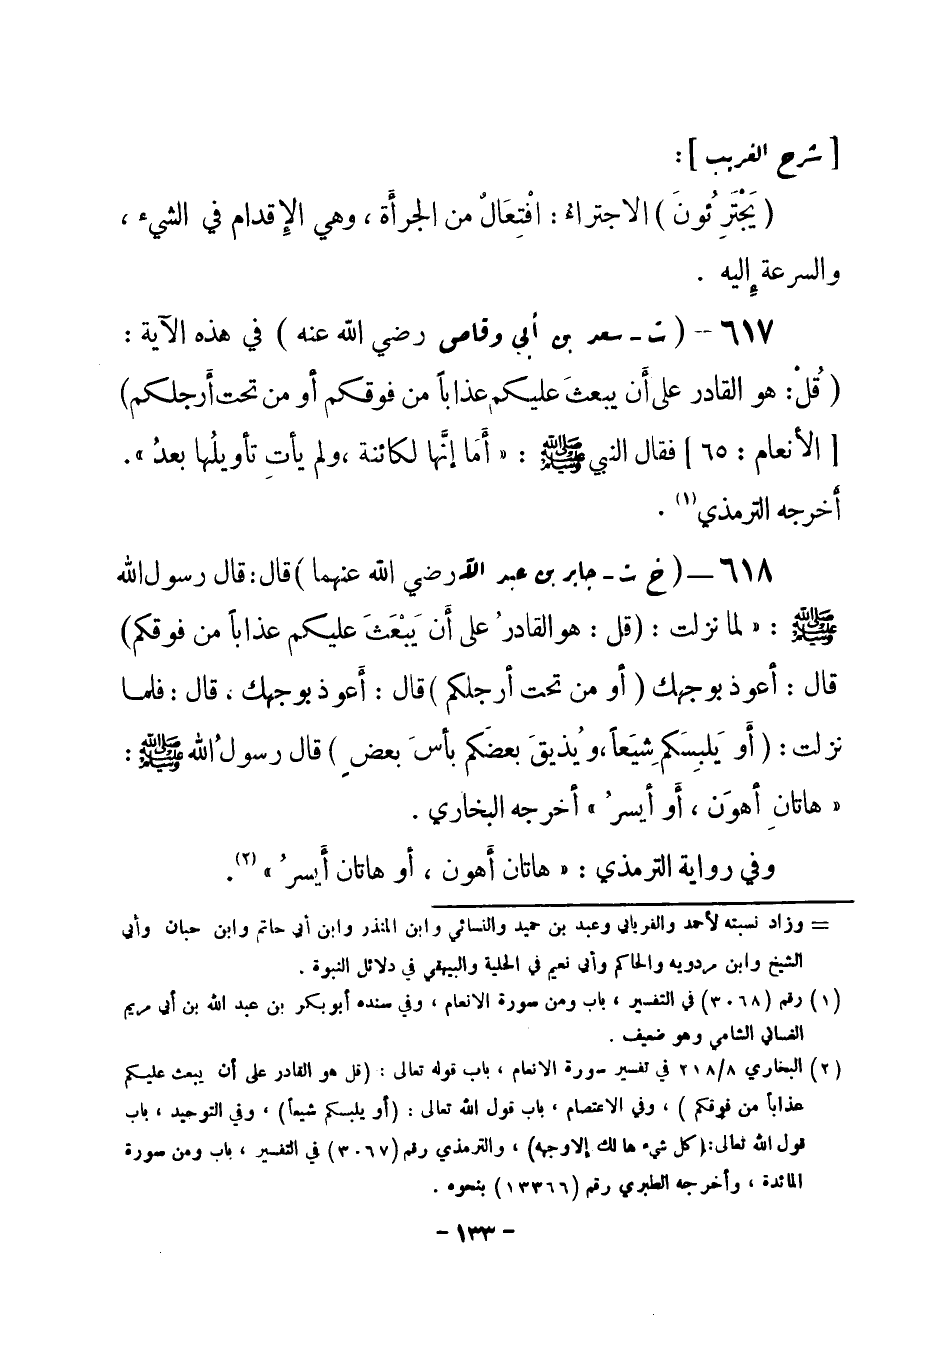 [ شرح الغريب ] :
( يَجْتَرِئُونَ ) الاجتراءُ : افْتِعَالٌ من الجرأَة ، وهي الإِقدام في الشيء ،
والسرعة إِليه .
٦١٧ – ( ت - سعد بن أبي وقاص رضي الله عنه ) في هذه الآية :
( قُلْ : هو القادر على أَن يبعثَ عليكم عذاباً من فوقكم أو من تحت أَرجلكم )
[ الأنعام : ٦٥ ] فقال النبي ﷺ : « أَمَا إنَّها لكائنة ، ولم يأتِ تأويلُها بعدُ » .
أخرجه الترمذي (١) .
٦١٨ – ( خ ت - جابر بن عبد الله رضي الله عنهما ) قال : قال رسول الله
ﷺ : « لما نزلت : ( قل : هو القادرُ على أَن يَبْعَثَ عليكم عذاباً من فوقكم )
قال : أعوذ بوجهك ( أو من تحت أرجلكم ) قال : أَعوذ بوجهك ، قال : فلما
نزلت : ( أَو يَلبِسَكم شِيَعاً ، ويُذيقَ بعضَكم بأسَ بعضٍ ) قال رسولُ الله ﷺ :
« هاتانِ أهوَن ، أَو أيسرُ » أخرجه البخاري .
وفي رواية الترمذي : « هاتان أَهون ، أو هاتان أَيسرُ » (٢) .
= وزاد نسبته لأحمد والفريابي وعبد بن حميد والنسائي وابن المنذر وابن أبي حاتم وابن حبان وأبي
الشيخ وابن مردويه والحاكم وأبي نعيم في الحلية والبيهقي في دلائل النبوة .
(١) رقم (٣٠٦٨) في التفسير ، باب ومن سورة الانعام ، وفي سنده أبو بكر بن عبد الله بن أبي مريم
الغساني الشامي وهو ضعيف .
(٢) البخاري ٢١٨/٨ في تفسير سورة الانعام ، باب قوله تعالى : (قل هو القادر على أن يبعث عليكم
عذاباً من فوقكم ) ، وفي الاعتصام ، باب قول الله تعالى : (أو يلبسكم شيعاً) ، وفي التوحيد ، باب
قول الله تعالى : (كل شيء هالك إلا وجهه) ، والترمذي رقم (٣٠٦٧) في التفسير ، باب ومن سورة
المائدة ، وأخرجه الطبري رقم (١٣٣٦٦) بنحوه .
- ١٣٣ -